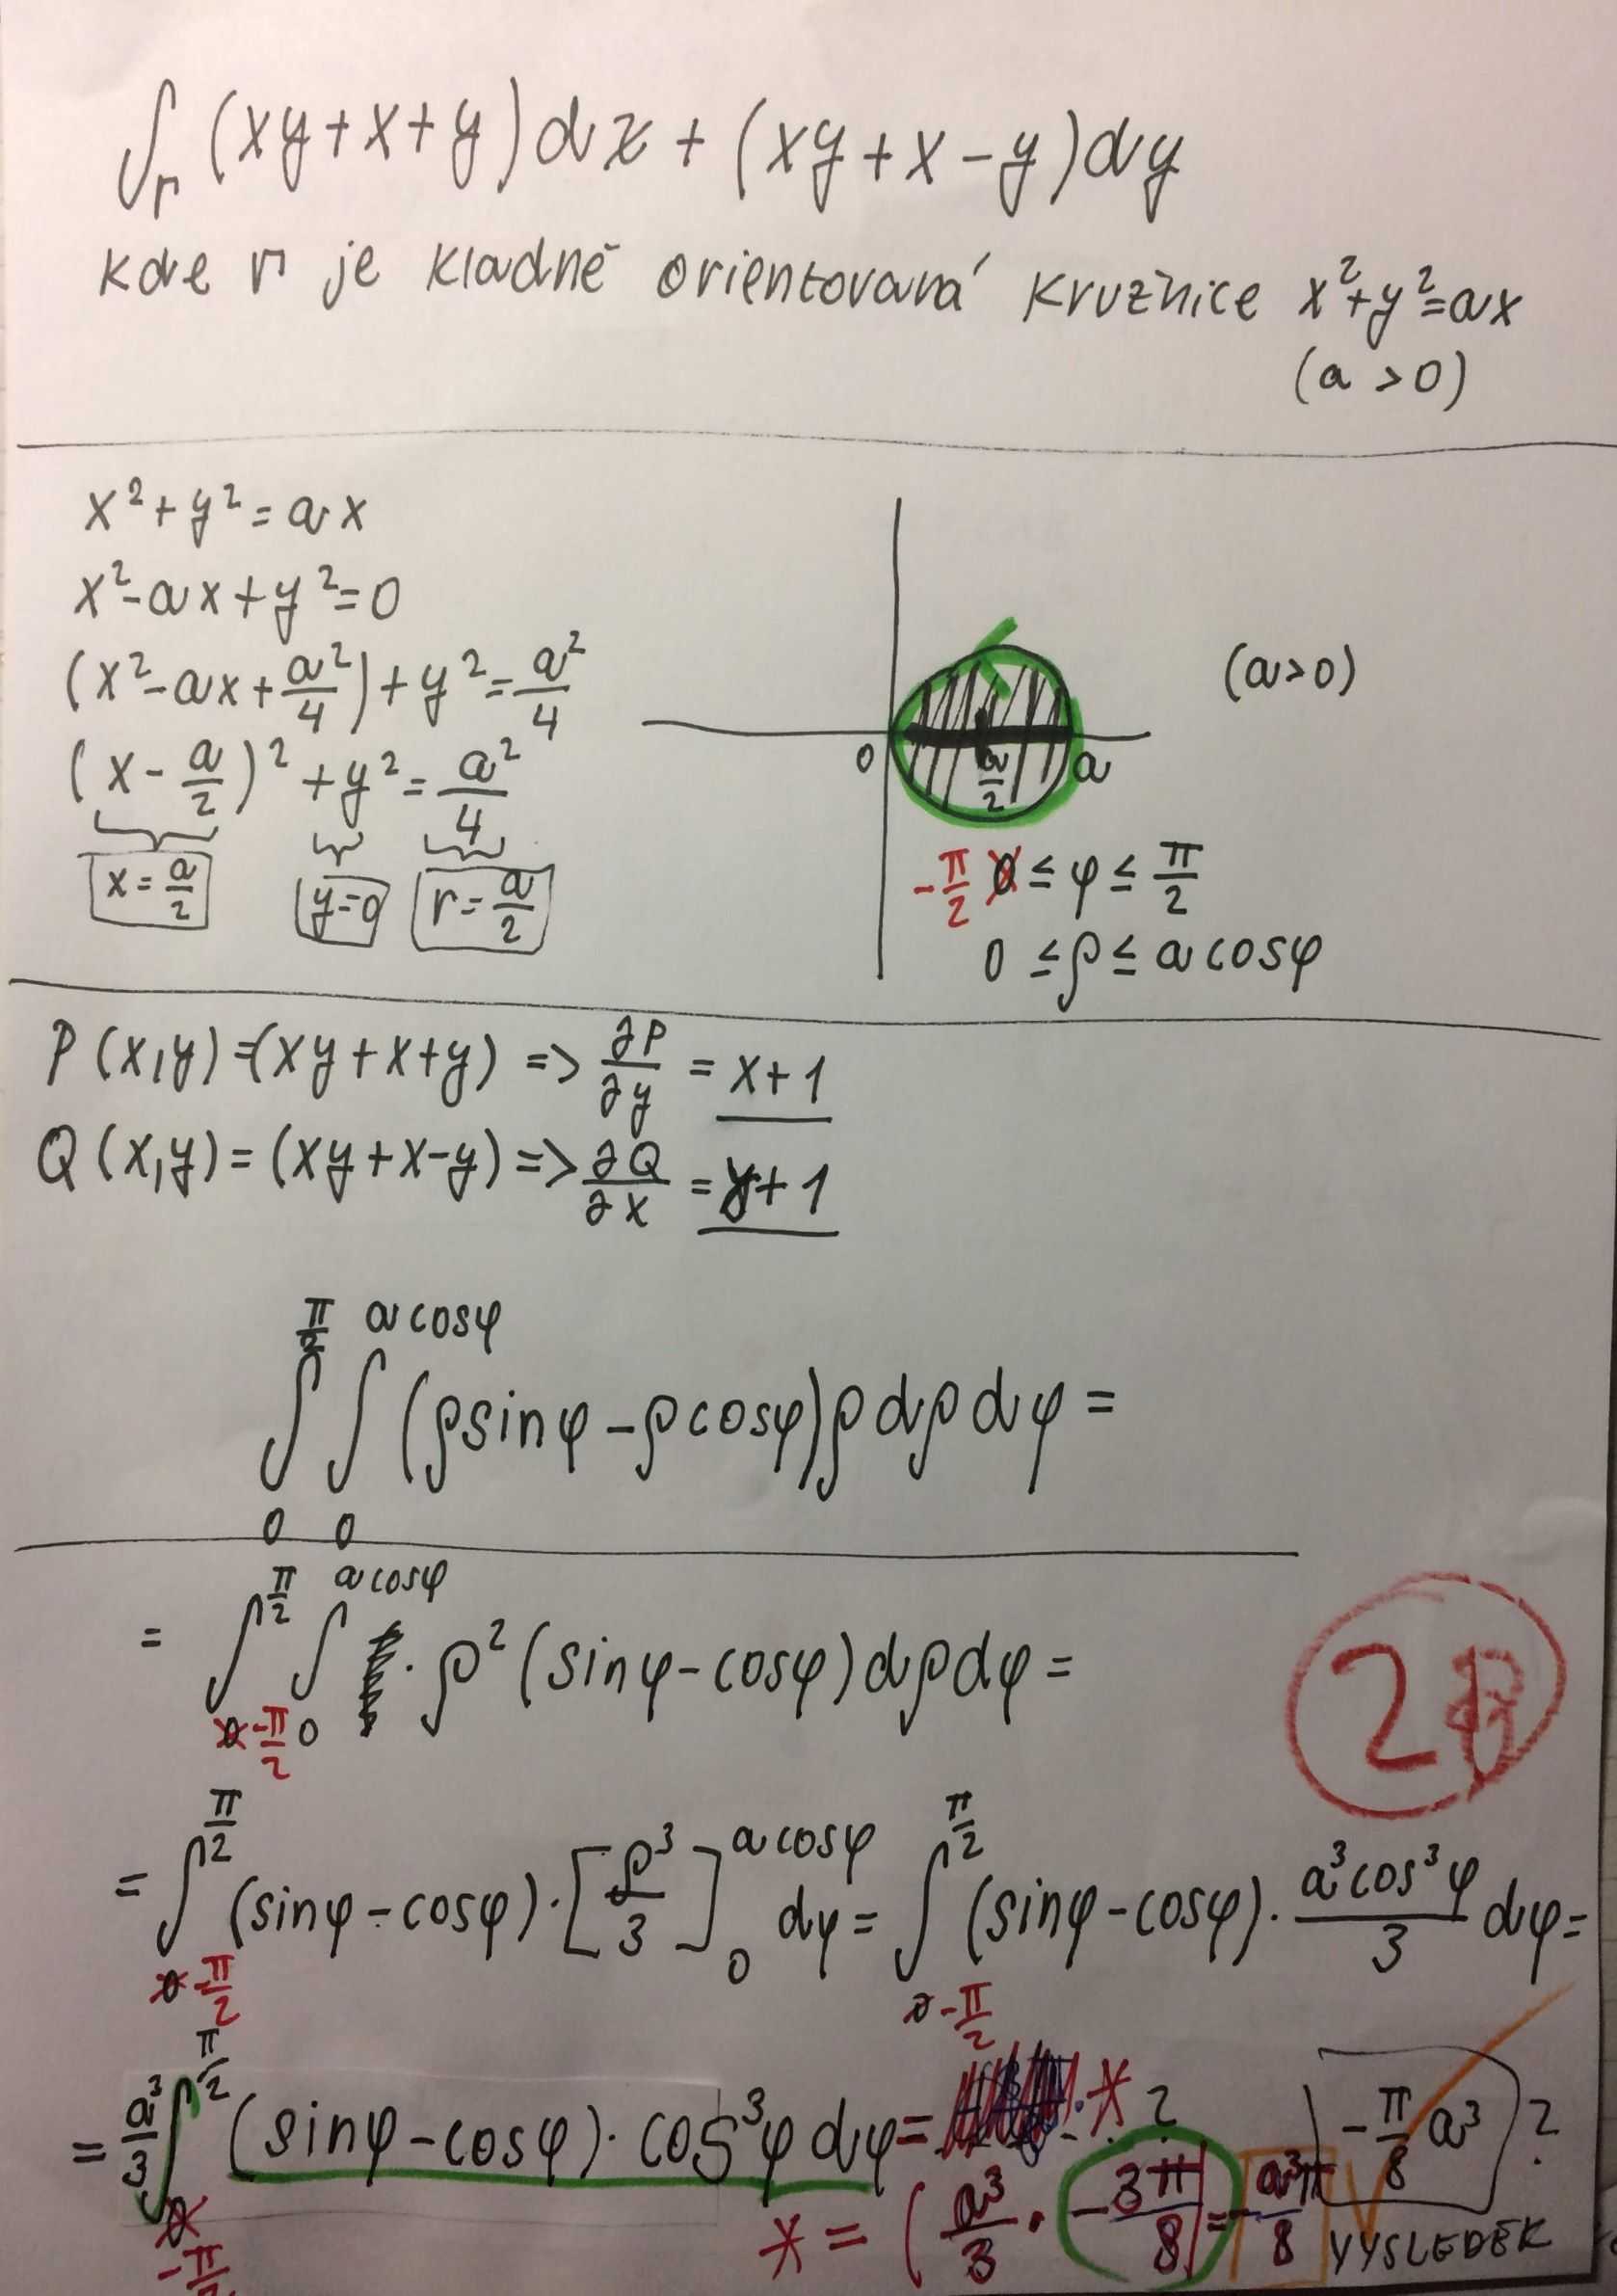 ∫ᵣ (xy+x+y)dx + (xy+x-y)dy
kde r je kladně orientovaná kružnice x²+y²=ax
(a >0)
x²+y²=ax
x²-ax+y²=0
(x²-ax+a²/4)+y²=a²/4
(x-a/2)²+y²=a²/4
x=a/2 y=0 r=a/2
(a>0)
0 a/2 a
-π/2 0 ≤ φ ≤ π/2
0 ≤ρ≤ a cosφ
P(x,y)=(xy+x+y) => ∂P/∂y = x+1
Q(x,y)=(xy+x-y) => ∂Q/∂x = y+1
π/2 a cosφ
∫ ∫ (ρsinφ-ρcosφ)ρdρdφ=
0 0
π/2 a cosφ
= ∫ ∫ · ρ²(sinφ-cosφ)dρdφ=
0 -π/2 0
2
π/2 a cosφ π/2
= ∫ (sinφ-cosφ)·[ρ³/3] dφ= ∫ (sinφ-cosφ)· a³cos³φ/3 dφ=
0 -π/2 0 0 -π/2
π/2
= a³/3 ∫ (sinφ-cosφ)·cos³φ dφ= * ? -π/8 a³ ?
0 -π/2
* = (a³/3 · -3π/8) = -a³π/8 VÝSLEDEK